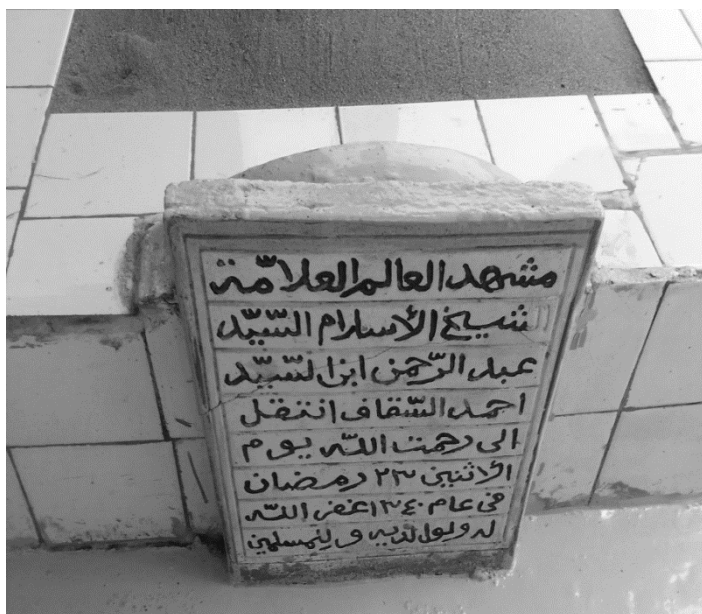 مشهد العالم العلامّة
شيخ الأسلام السّيّد
عبد الرّحمن ابن السّيّد
احمد السّقاف انتقل
الى رحمت اللّه يوم
الاثنين ٢٣ رمضان
في عام ١٣٤٠ غفر اللّه
له ولوالديه وللمسلمين